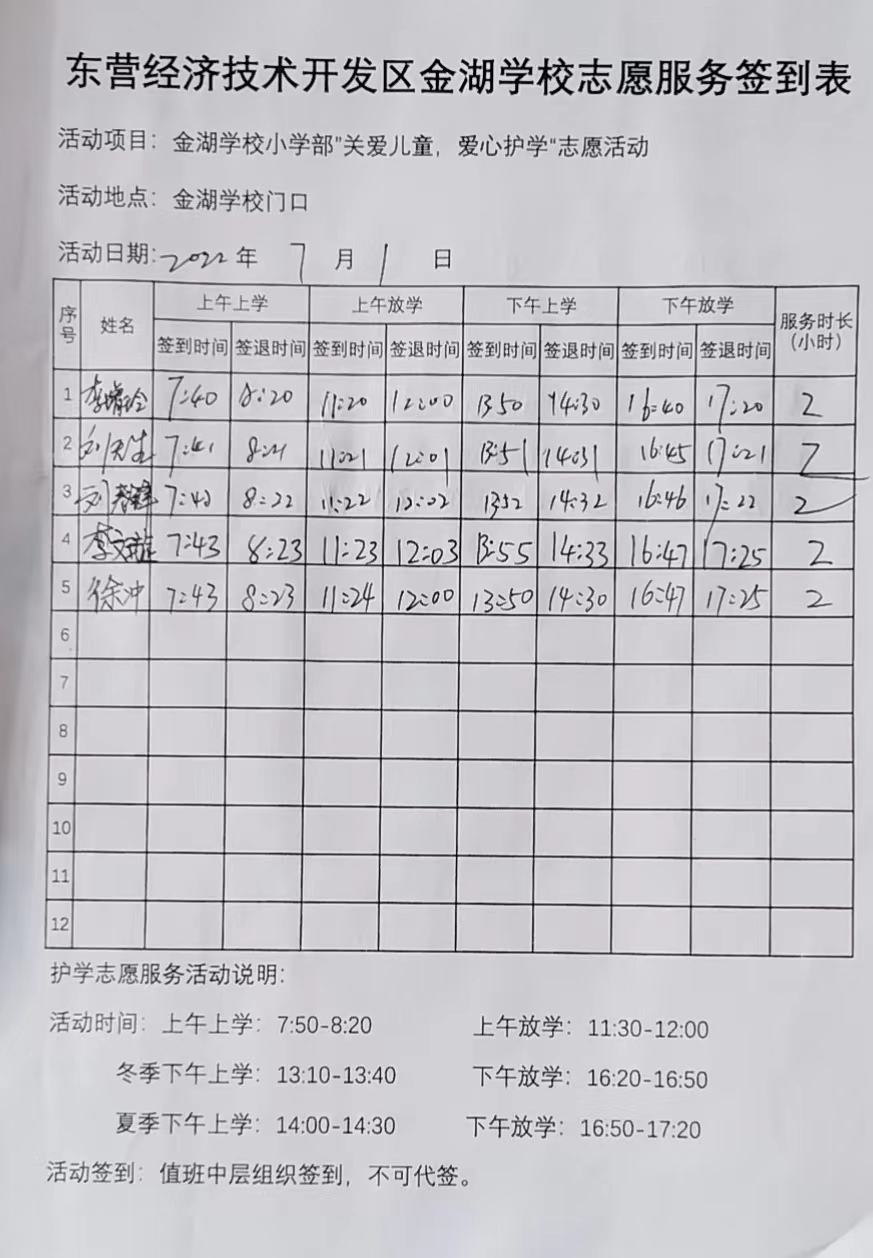 东营经济技术开发区金湖学校志愿服务签到表
活动项目：金湖学校小学部"关爱儿童，爱心护学"志愿活动
活动地点：金湖学校门口
活动日期:2022年 7 月 1 日
序号 姓名 上午上学 上午放学 下午上学 下午放学 服务时长(小时)
签到时间 签退时间 签到时间 签退时间 签到时间 签退时间 签到时间 签退时间
1 7:40 8:20 11:20 12:00 13:50 14:30 16:40 17:20 2
2 7:41 8:21 11:21 12:01 13:51 14:31 16:45 17:21 2
3 7:42 8:22 11:22 12:02 13:52 14:32 16:46 17:22 2
4 7:43 8:23 11:23 12:03 13:55 14:33 16:47 17:25 2
5 徐冲 7:43 8:23 11:24 12:00 13:50 14:30 16:47 17:25 2
6
7
8
9
10
11
12
护学志愿服务活动说明：
活动时间：上午上学：7:50-8:20 上午放学：11:30-12:00
冬季下午上学：13:10-13:40 下午放学：16:20-16:50
夏季下午上学：14:00-14:30 下午放学：16:50-17:20
活动签到：值班中层组织签到，不可代签。